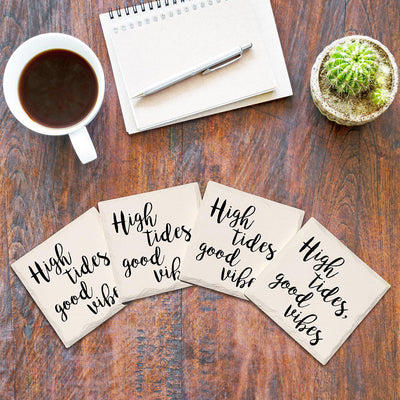 High
tides
good
vibes
High
tides,
good
vibes
High
tides
good
vibes
High
tides,
good
vibes